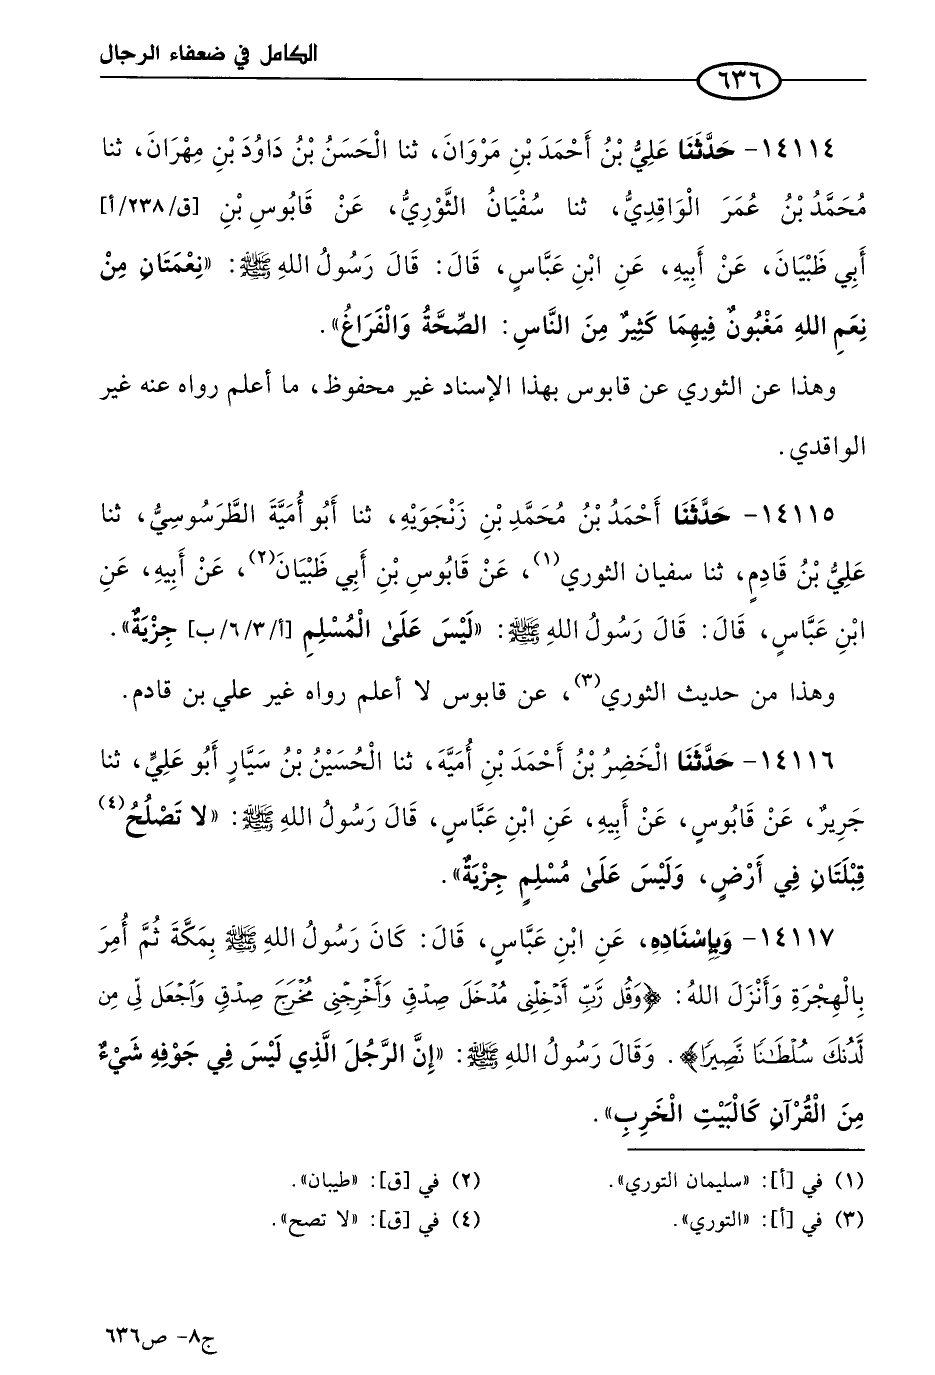 الكامل في ضعفاء الرجال
٦٣٦
١٤١١٤- حَدَّثَنَا عَلِيُّ بْنُ أَحْمَدَ بْنِ مَرْوَانَ، ثنا الْحَسَنُ بْنُ دَاوُدَ بْنِ مِهْرَانَ، ثنا
مُحَمَّدُ بْنُ عُمَرَ الْوَاقِدِيُّ، ثنا سُفْيَانُ الثَّوْرِيُّ، عَنْ قَابُوسِ بْنِ [ق/٢٣٨/أ]
أَبِي ظَبْيَانَ، عَنْ أَبِيهِ، عَنِ ابْنِ عَبَّاسٍ، قَالَ: قَالَ رَسُولُ اللهِ ﷺ: «نِعْمَتَانِ مِنْ
نِعَمِ اللهِ مَغْبُونٌ فِيهِمَا كَثِيرٌ مِنَ النَّاسِ: الصِّحَّةُ وَالْفَرَاغُ».
وهذا عن الثوري عن قابوس بهذا الإسناد غير محفوظ، ما أعلم رواه عنه غير
الواقدي.
١٤١١٥- حَدَّثَنَا أَحْمَدُ بْنُ مُحَمَّدِ بْنِ زَنْجَوَيْهِ، ثنا أَبُو أُمَيَّةَ الطَّرَسُوسِيُّ، ثنا
عَلِيُّ بْنُ قَادِمٍ، ثنا سفيان الثوري(١)، عَنْ قَابُوسِ بْنِ أَبِي ظَبْيَانَ(٢)، عَنْ أَبِيهِ، عَنِ
ابْنِ عَبَّاسٍ، قَالَ: قَالَ رَسُولُ اللهِ ﷺ: «لَيْسَ عَلَىٰ الْمُسْلِمِ [أ/٦/٣/ب] جِزْيَةٌ».
وهذا من حديث الثوري(٣)، عن قابوس لا أعلم رواه غير علي بن قادم.
١٤١١٦- حَدَّثَنَا الْخَضِرُ بْنُ أَحْمَدَ بْنِ أُمَيَّةَ، ثنا الْحُسَيْنُ بْنُ سَيَّارٍ أَبُو عَلِيٍّ، ثنا
جَرِيرٌ، عَنْ قَابُوسٍ، عَنْ أَبِيهِ، عَنِ ابْنِ عَبَّاسٍ، قَالَ رَسُولُ اللهِ ﷺ: «لا تَصْلُحُ(٤)
قِبْلَتَانِ فِي أَرْضٍ، وَلَيْسَ عَلَىٰ مُسْلِمٍ جِزْيَةٌ».
١٤١١٧- وَبِإِسْنَادِهِ، عَنِ ابْنِ عَبَّاسٍ، قَالَ: كَانَ رَسُولُ اللهِ ﷺ بِمَكَّةَ ثُمَّ أُمِرَ
بِالْهِجْرَةِ وَأَنْزَلَ اللهُ: ﴿وَقُل رَّبِّ أَدْخِلْنِي مُدْخَلَ صِدْقٍ وَأَخْرِجْنِي مُخْرَجَ صِدْقٍ وَٱجْعَل لِّي مِن
لَّدُنكَ سُلْطَٰنًا نَّصِيرًا﴾. وَقَالَ رَسُولُ اللهِ ﷺ: «إِنَّ الرَّجُلَ الَّذِي لَيْسَ فِي جَوْفِهِ شَيْءٌ
مِنَ الْقُرْآنِ كَالْبَيْتِ الْخَرِبِ».
(١) في [أ]: «سليمان التوري». (٢) في [ق]: «طيبان».
(٣) في [أ]: «التوري». (٤) في [ق]: «لا تصح».
ج٨- ص٦٣٦